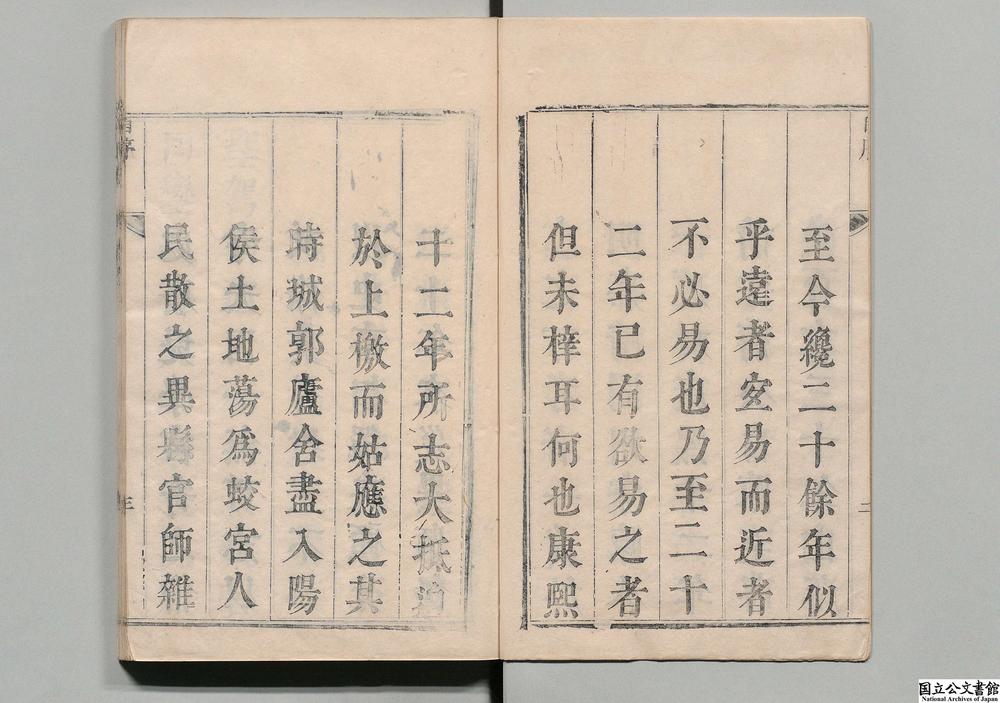 至今纔二十餘年似
乎遠者宜易而近者
不必易也乃至二十
二年已有欲易之者
但未梓耳何也康熙
十二年所志大抵迫
於上檄而姑應之其
時城郭廬舍盡入陽
侯土地蕩爲蛟宮人
民散之異縣官師雜
国立公文書館
National Archives of Japan